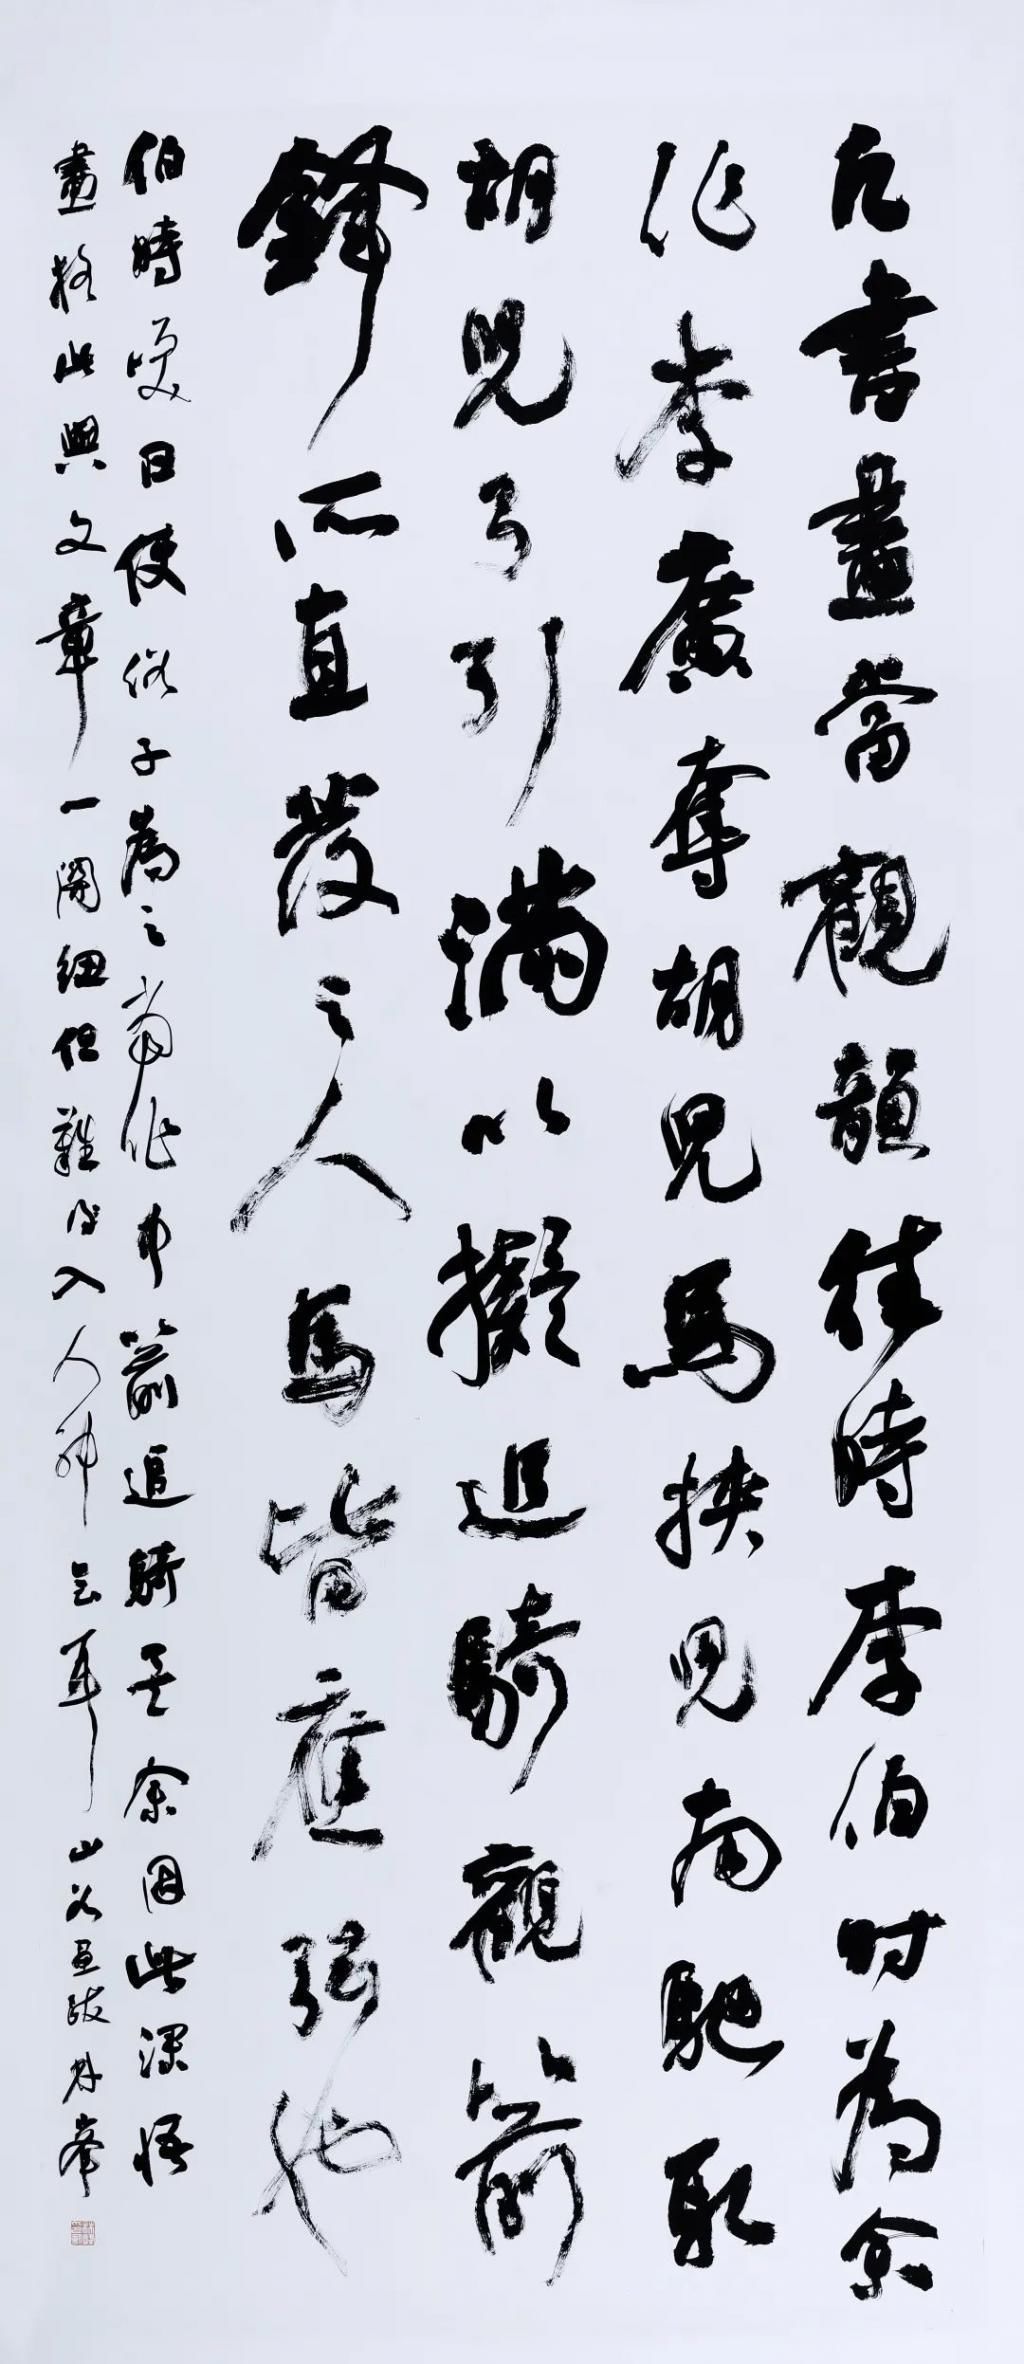 凡書畫當觀韻往時李伯时為余
作李廣奪胡兒馬挾兒南馳取
胡兒弓引滿以擬追騎觀箭
鋒所直發之人馬皆應弦也
伯時咲曰使俗子為之當作中箭追騎矣余因此深悟
畫格此與文章一關紐但難得入人神会耳 山谷画跋 峯